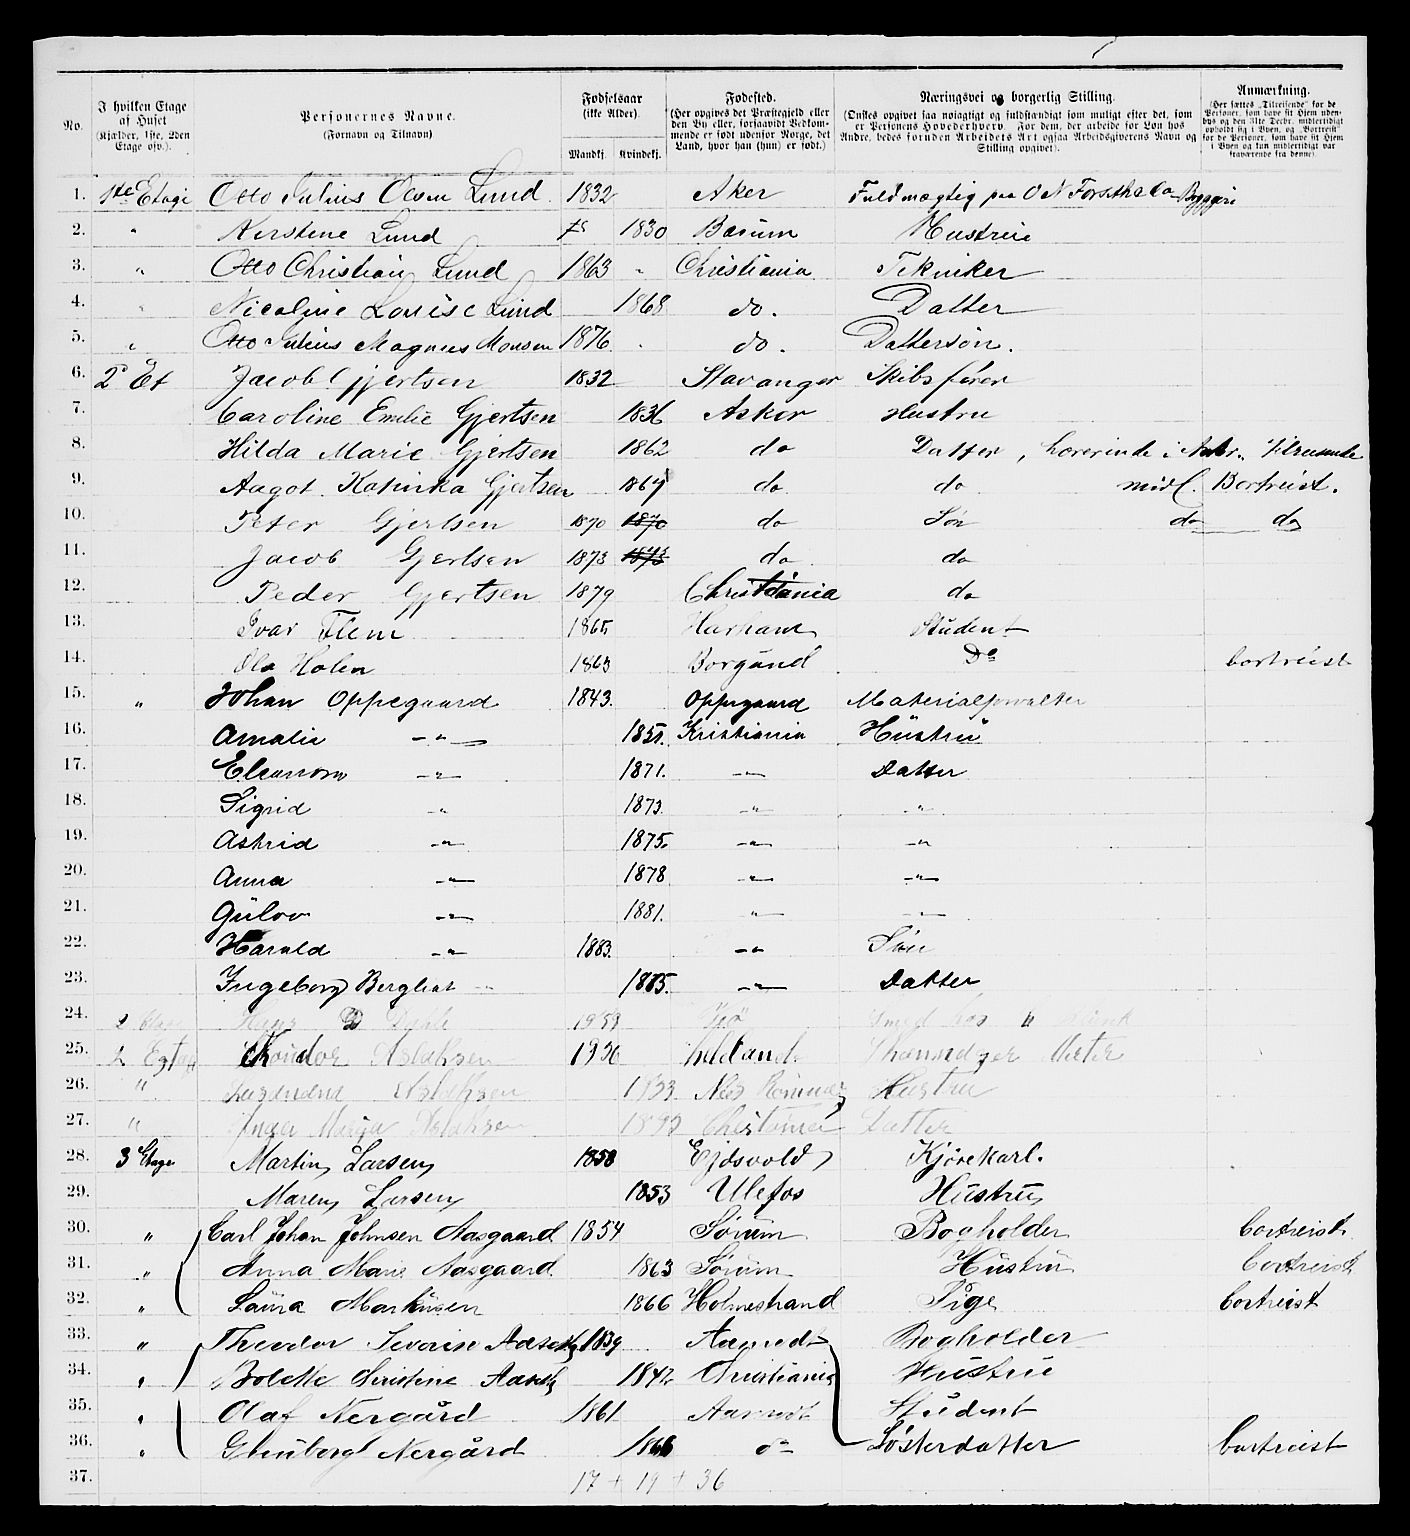 No.
I hvilken Etage af Huset (Kjælder, 1ste, 2den Etage osv.).
Personernes Navne. (Fornavn og Tilnavn)
Fødselsaar (ikke Alder).
Mandkj. Kvindekj.
Fødested. (Her opgives det Præstegjeld eller den By eller, forsaavidt Vedkommende er født udenfor Norge, det Land, hvor han (hun) er født.)
Næringsvei og borgerlig Stilling. (Ønskes opgivet saa nøiagtigt og fuldstændigt som muligt efter det, som er Personens Hovederhverv. For dem, der arbeide for Løn hos Andre, bedes foruden Arbeidets Art ogsaa Arbeidsgiverens Navn og Stilling opgivet.)
Anmærkning. (Her sættes „Tilreisende" for de Personer, som have sit Hjem udenbys og den 31te Decbr. midlertidigt opholdt sig i Byen, og „Bortreist" for de Personer, som have sit Hjem i Byen og kun midlertidigt var fraværende fra denne).
1. 1ste Etage Otto Julius Olsen Lund 1832 Aker Fuldmægtig paa Bryggeri
2. " Kirstene Lund 1830 Bærum Hustrue
3. " Otto Christian Lund 1863 " Christiania Tekniker
4. " Nicoline Louise Lund 1868 do. Datter
5. " Otto Julius Magnus Monsen 1876 do. Dattersøn.
6. 2 Et Jacob Gjertsen 1832 Stavanger Skibsfører
7. Caroline Emilie Gjertsen 1836 Asker Hustru
8. Hilda Marie Gjertsen 1862 do Datter, Lærerinde i Tilreisende
9. Aagot Katinka Gjertsen 1867 do do midl. Bortreist.
10. Peter Gjertsen 1870 1870 do Søn do do
11. Jacob Gjertsen 1873 1873 do do
12. Peder Gjertsen 1879 Christiania do
13. Ivar Flem 1865 Harham Student
14. Ola Holen 1863 Borgund Do bortreist
15. " Johan Oppegaard 1843. Oppegaard Materialforvalter
16. Amalie -"- 1851. Kristiania Hustru
17. Eleonora -"- 1871. -"- Datter
18. Sigrid " 1873. -"- -"-
19. Astrid -"- 1875. -"- -"-
20. Anna -"- 1878 -"- -"-
21. Gulov -"- 1881. -"- -"-
22. Harald -"- 1883. -"- Søn
23. Ingeborg Bergliot -"- 1885. -"- Datter
24. 2 Etage 1859 Smed hos
25. 2 Etage Aslaksen 1836
26. " Aslaksen 1833 Nes Hustru
27. " Aslaksen Christiania Datter
28. 3 Etage Martin Larsen 1858 Ejdsvold Kjørekarl.
29. Maren Larsen 1853 Ulefos Hustru
30. " Carl Johan Johnsen Aasgaard 1854 Sørum Bogholder bortreist
31. " Anna Marie Aasgaard 1863 Sørum Hustru bortreist
32. " Laura Markusen 1866 Holmestrand Pige bortreist
33. " Theodor Severin 1839 Aamodt Bogholder
34. " Bolette Christine 1842 Christiania Hustrue
35. " Olaf Nergård 1861 Aamodt Student
36. " Nergård 1866 do Søsterdatter bortreist
37. 17 + 19 + 36